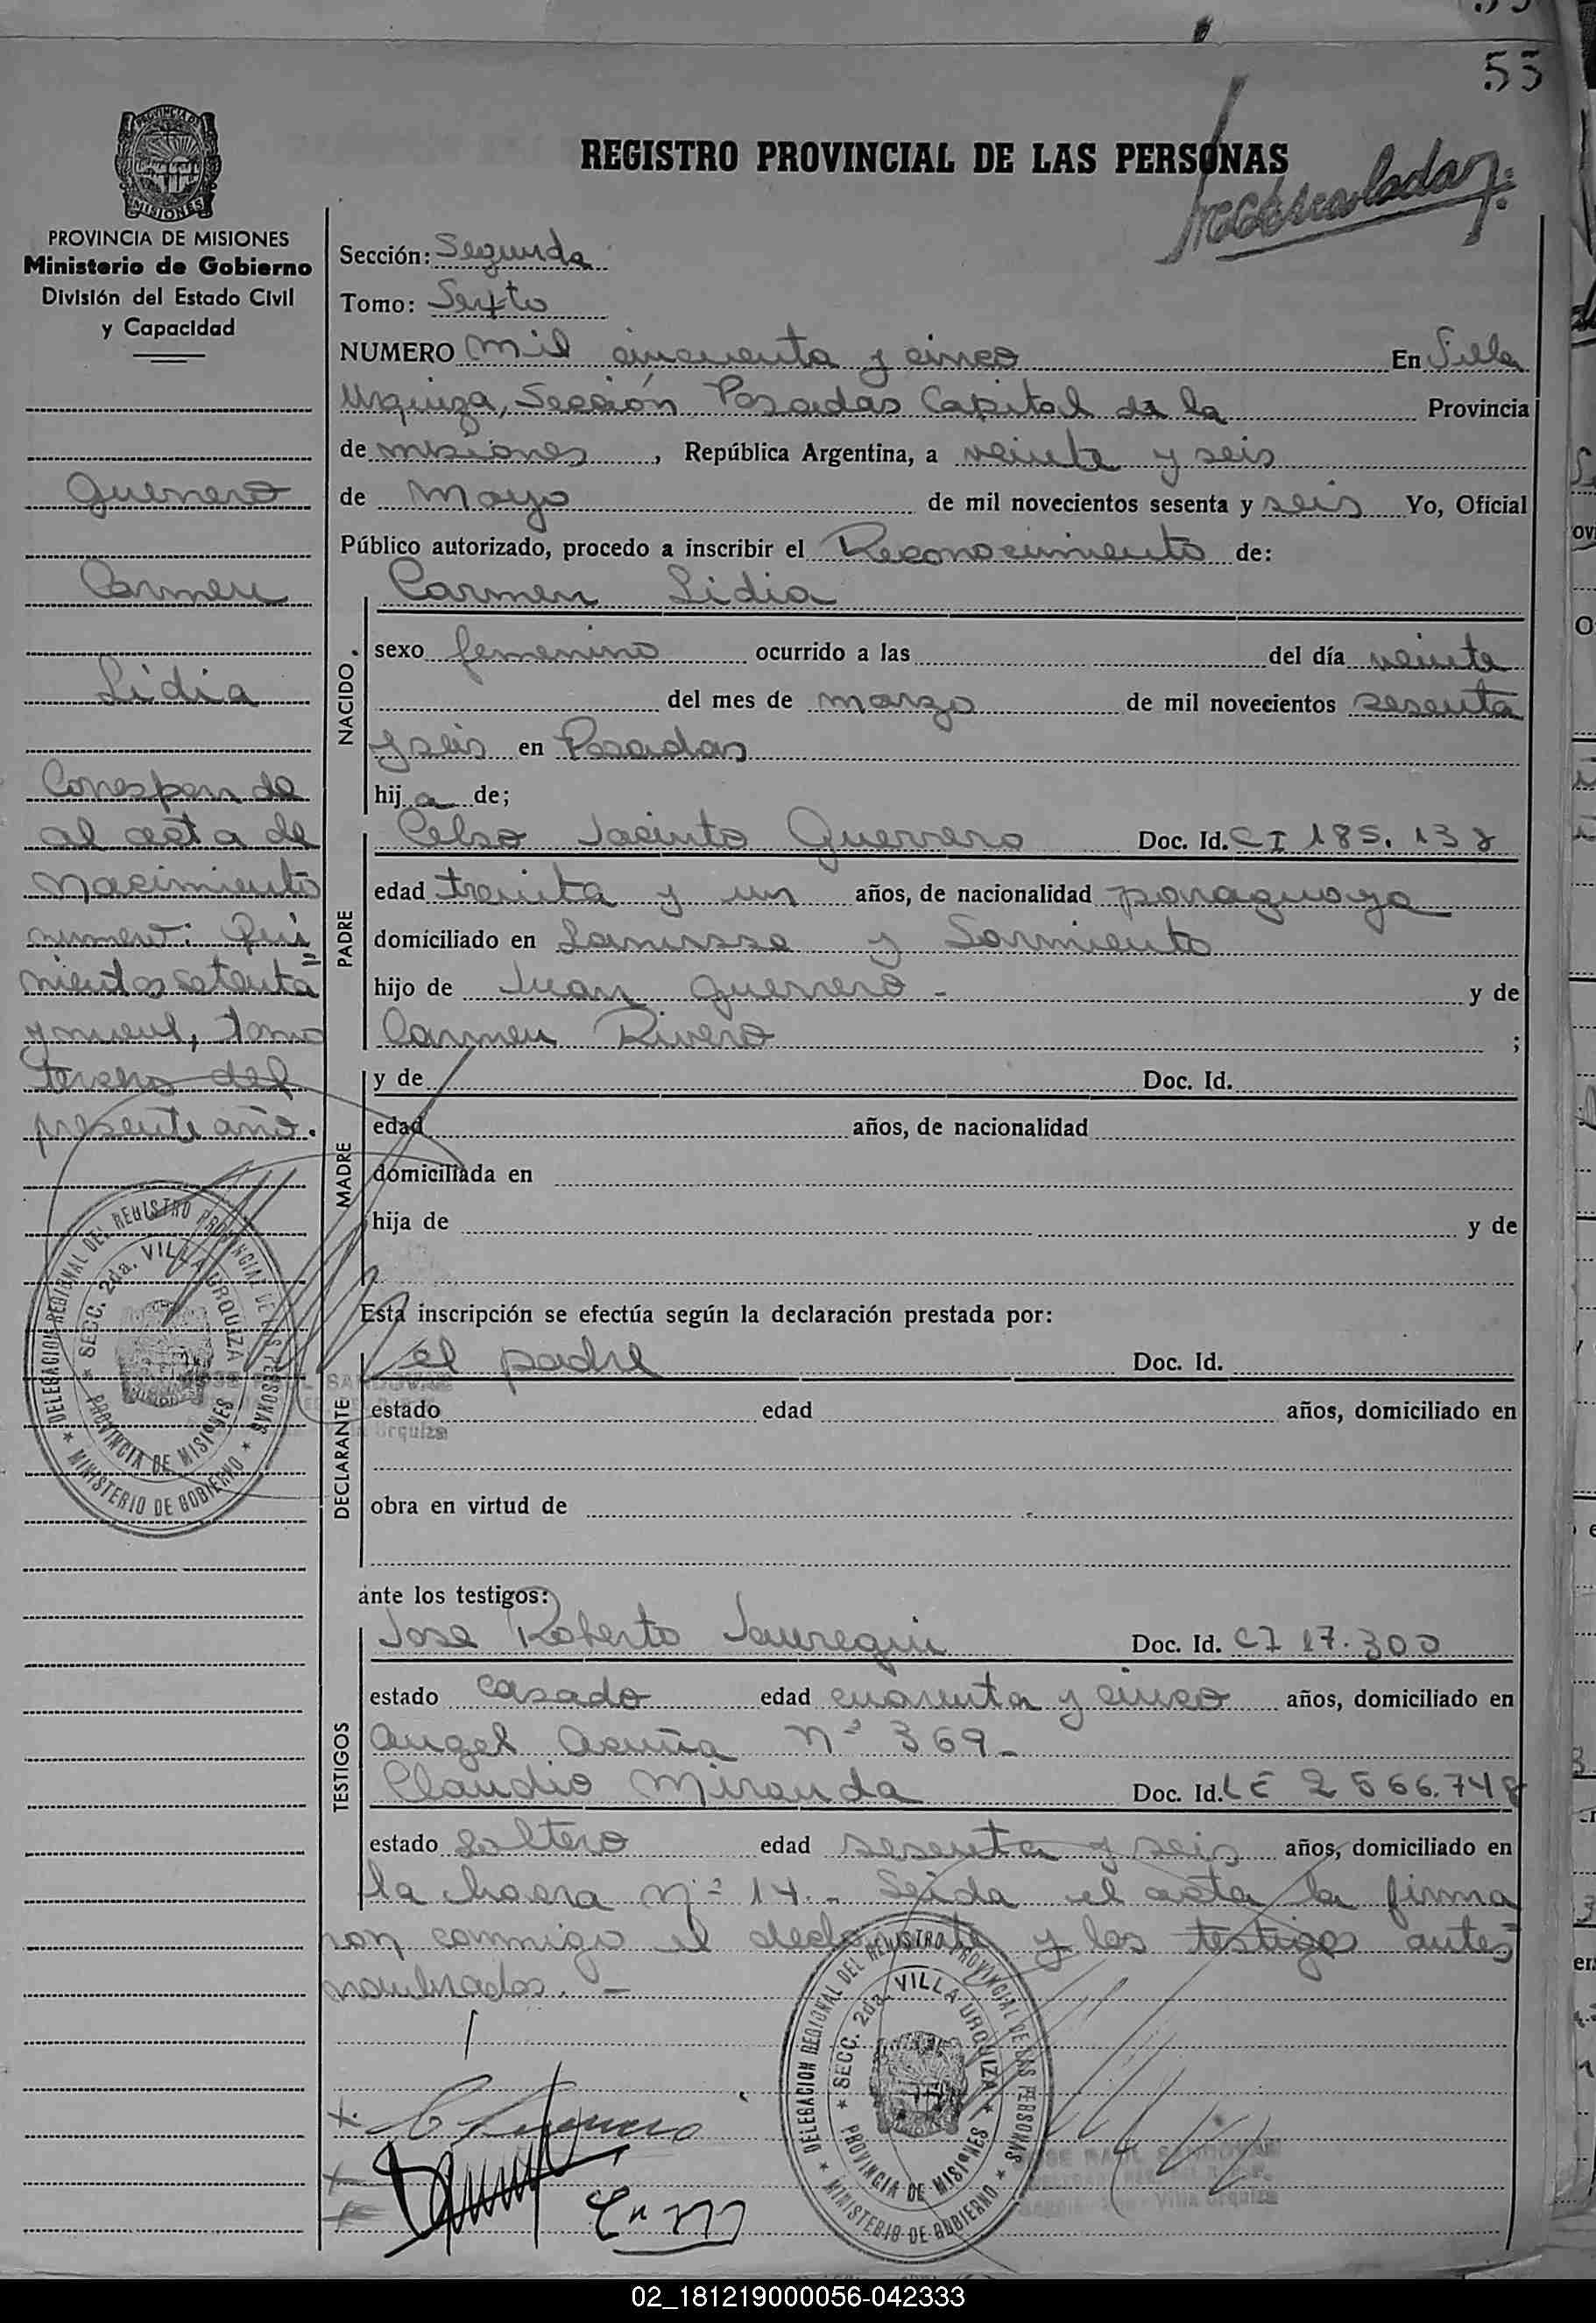 55
REGISTRO PROVINCIAL DE LAS PERSONAS
PROVINCIA DE MISIONES
Ministerio de Gobierno
División del Estado Civil
y Capacidad
Guerrero
Carmen
Lidia
Correspon de
al acta de
Nacimiento
numero: Qui
nientos setenta
y nueve, tomo
tercero del
presente año.
Sección: Segunda
Tomo: Sexto
NUMERO mil cincuenta y cinco En Villa
Urquiza, Sección Posadas Capital de la Provincia
de misiones, República Argentina, a veinte y seis
de mayo de mil novecientos sesenta y seis Yo, Oficial
Público autorizado, procedo a inscribir el Reconocimiento de:
NACIDO
Carmen Lidia
sexo femenino ocurrido a las del día veinte
del mes de marzo de mil novecientos sesenta
y seis en Posadas
hij a de;
PADRE
Celso Jacinto Guerrero Doc. Id. CI 185.138
edad treinta y un años, de nacionalidad paraguaya
domiciliado en y Sarmiento
hijo de Juan Guerrero - y de
Carmen Rivero ;
MADRE
y de Doc. Id.
edad años, de nacionalidad
domiciliada en
hija de y de
Esta inscripción se efectúa según la declaración prestada por:
DECLARANTE
el padre Doc. Id.
estado edad años, domiciliado en
obra en virtud de
ante los testigos:
TESTIGOS
Jose Roberto Jauregui Doc. Id. CI 17.300
estado casado edad cuarenta y cinco años, domiciliado en
Angel Acuña Nº 369-
Claudio Miranda Doc. Id. LE 2566.748
estado Soltero edad sesenta y seis años, domiciliado en
la chacra Nº 14.- Leida el acta la firma
ron conmigo el declarante y los testigos antes
nombrados. -
DELEGACION REGIONAL DEL REGISTRO PROVINCIAL DE LAS PERSONAS
SECC. 2da. VILLA URQUIZA
PROVINCIA DE MISIONES
MINISTERIO DE GOBIERNO
DELEGACION REGIONAL DEL REGISTRO PROVINCIAL DE LAS PERSONAS
SECC. 2da. VILLA URQUIZA
PROVINCIA DE MISIONES
MINISTERIO DE GOBIERNO
JOSE RAUL SANDOVAL
Villa Urquiza
02_181219000056-042333